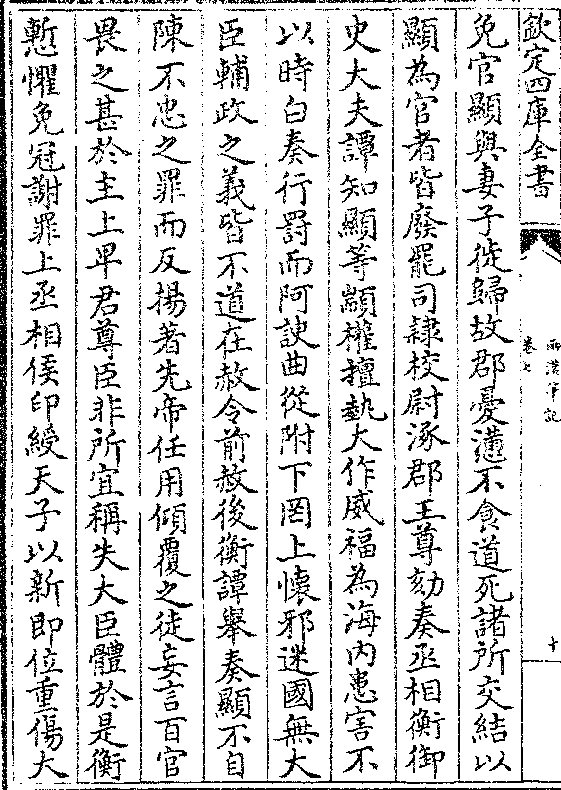 欽定四庫全書
兩漢筆記
卷七
十
免官顯與妻子徙歸故郡憂懣不食道死諸所交結以
顯為官者皆廢罷司隸校尉涿郡王尊劾奏丞相衡御
史大夫譚知顯等顓權擅埶大作威福為海內患害不
以時白奏行罰而阿諛曲從附下罔上懷邪迷國無大
臣輔政之義皆不道在赦令前赦後衡譚舉奏顯不自
陳不忠之罪而反揚著先帝任用傾覆之徒妄言百官
畏之甚於主上卑君尊臣非所宜稱失大臣體於是衡
慙懼免冠謝罪上丞相侯印綬天子以新即位重傷大